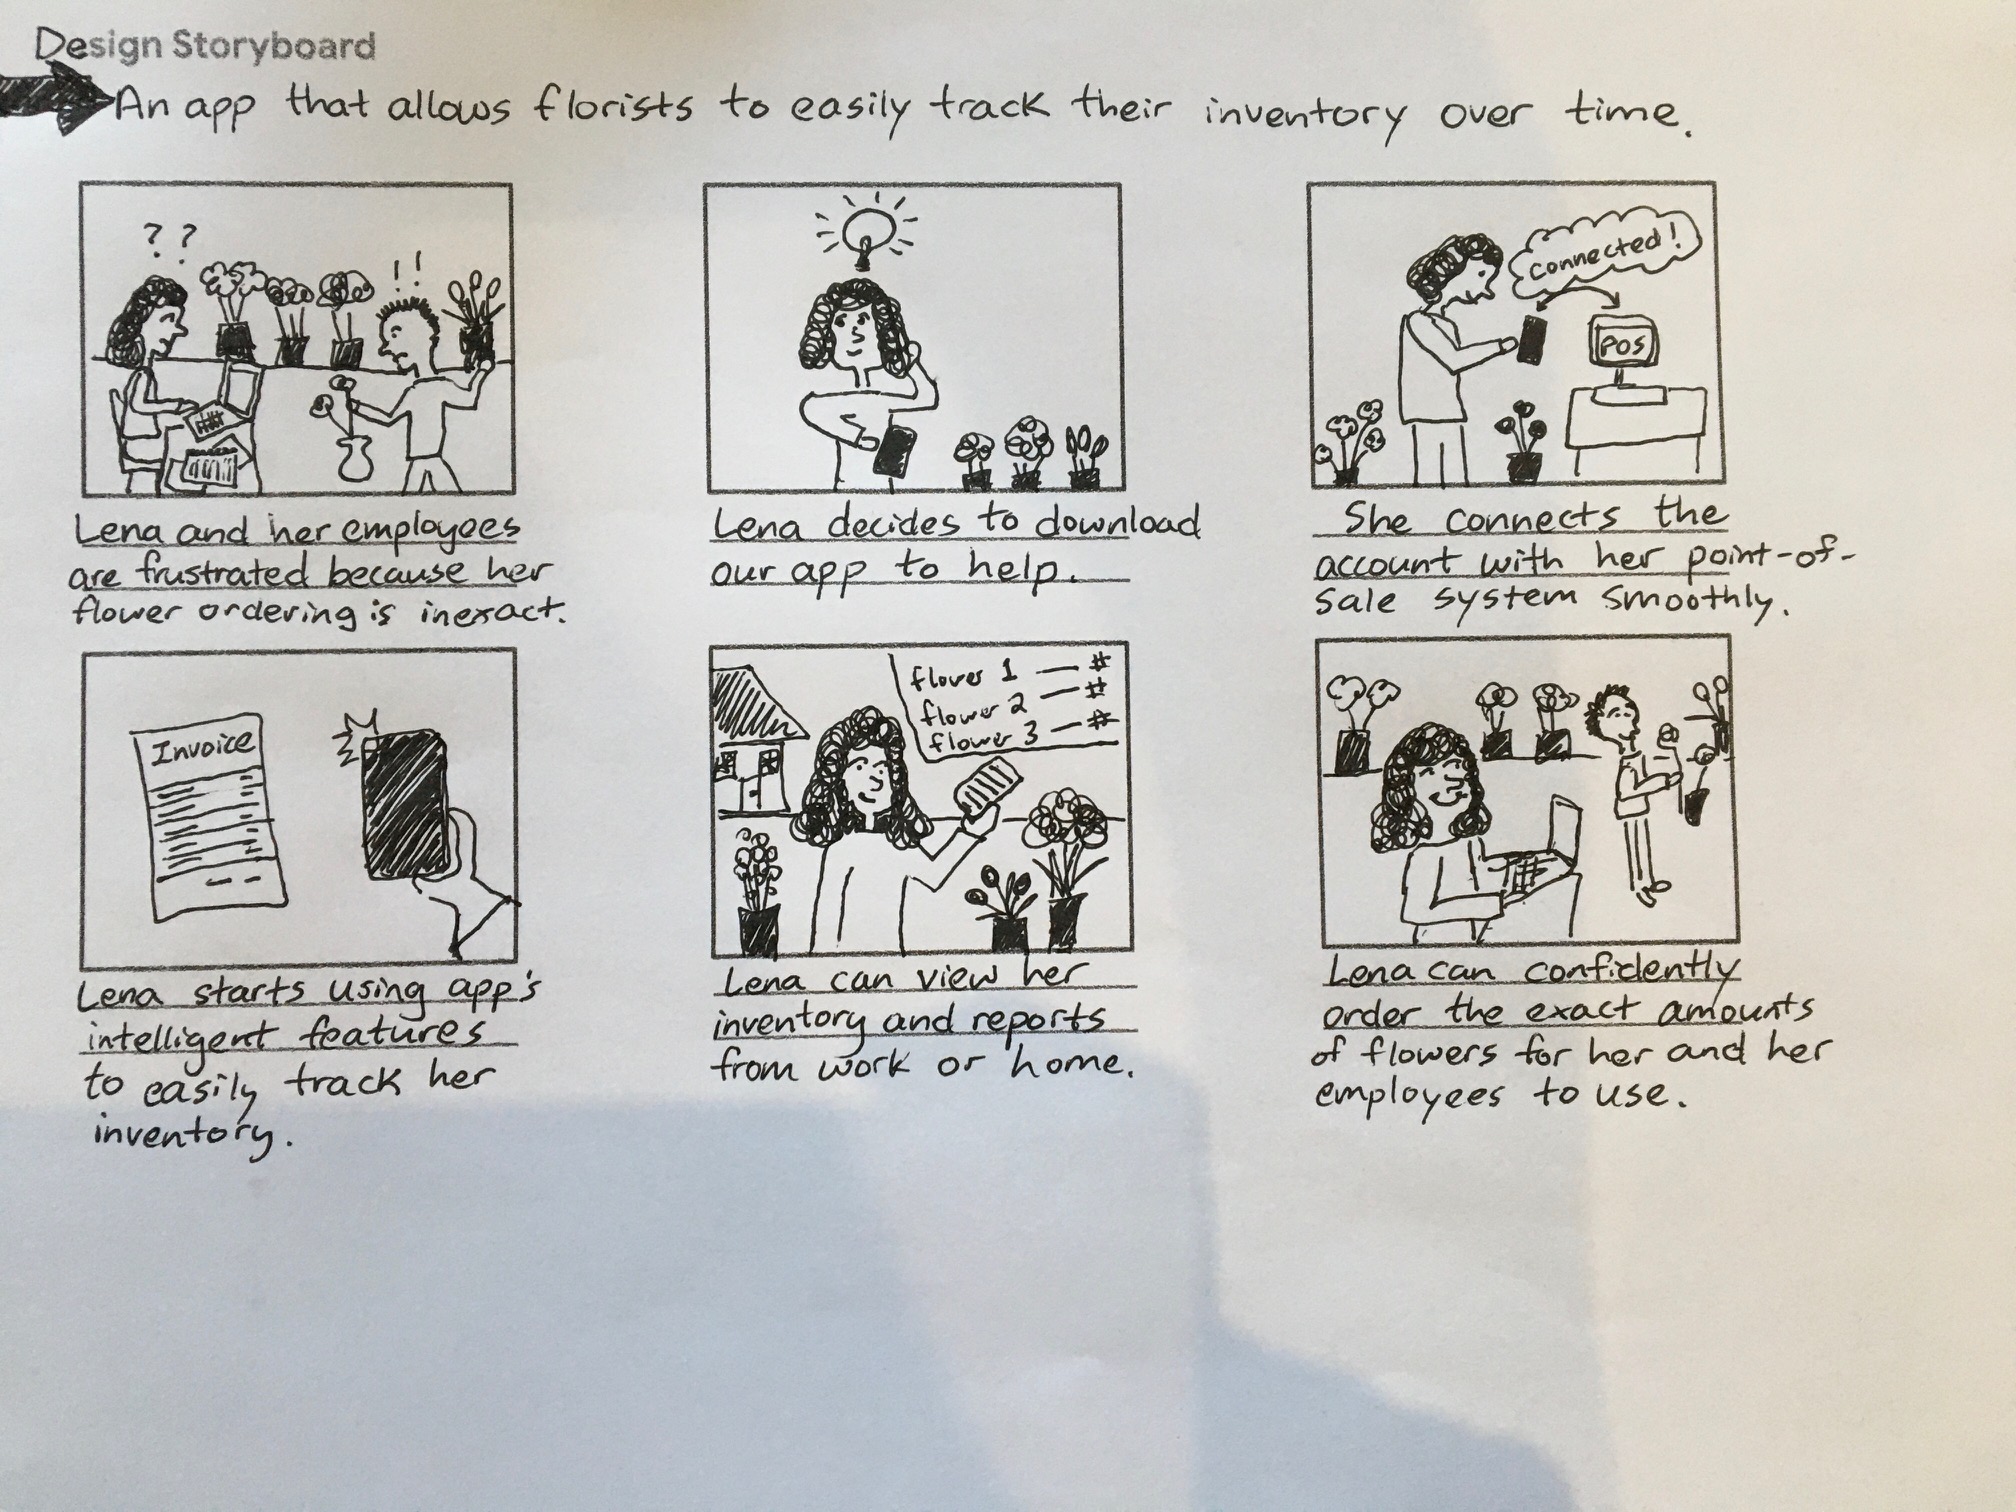 Design Storyboard
An app that allows florists to easily track their inventory over time.
? ?
! !
Lena and her employees
are frustrated because her
flower ordering is inexact.
Lena decides to download
our app to help.
Connected!
POS
She connects the
account with her point-of-
sale system smoothly.
Invoice
Lena starts using app's
intelligent features
to easily track her
inventory.
flower 1 — #
flower 2 — #
flower 3 — #
Lena can view her
inventory and reports
from work or home.
Lena can confidently
order the exact amounts
of flowers for her and her
employees to use.